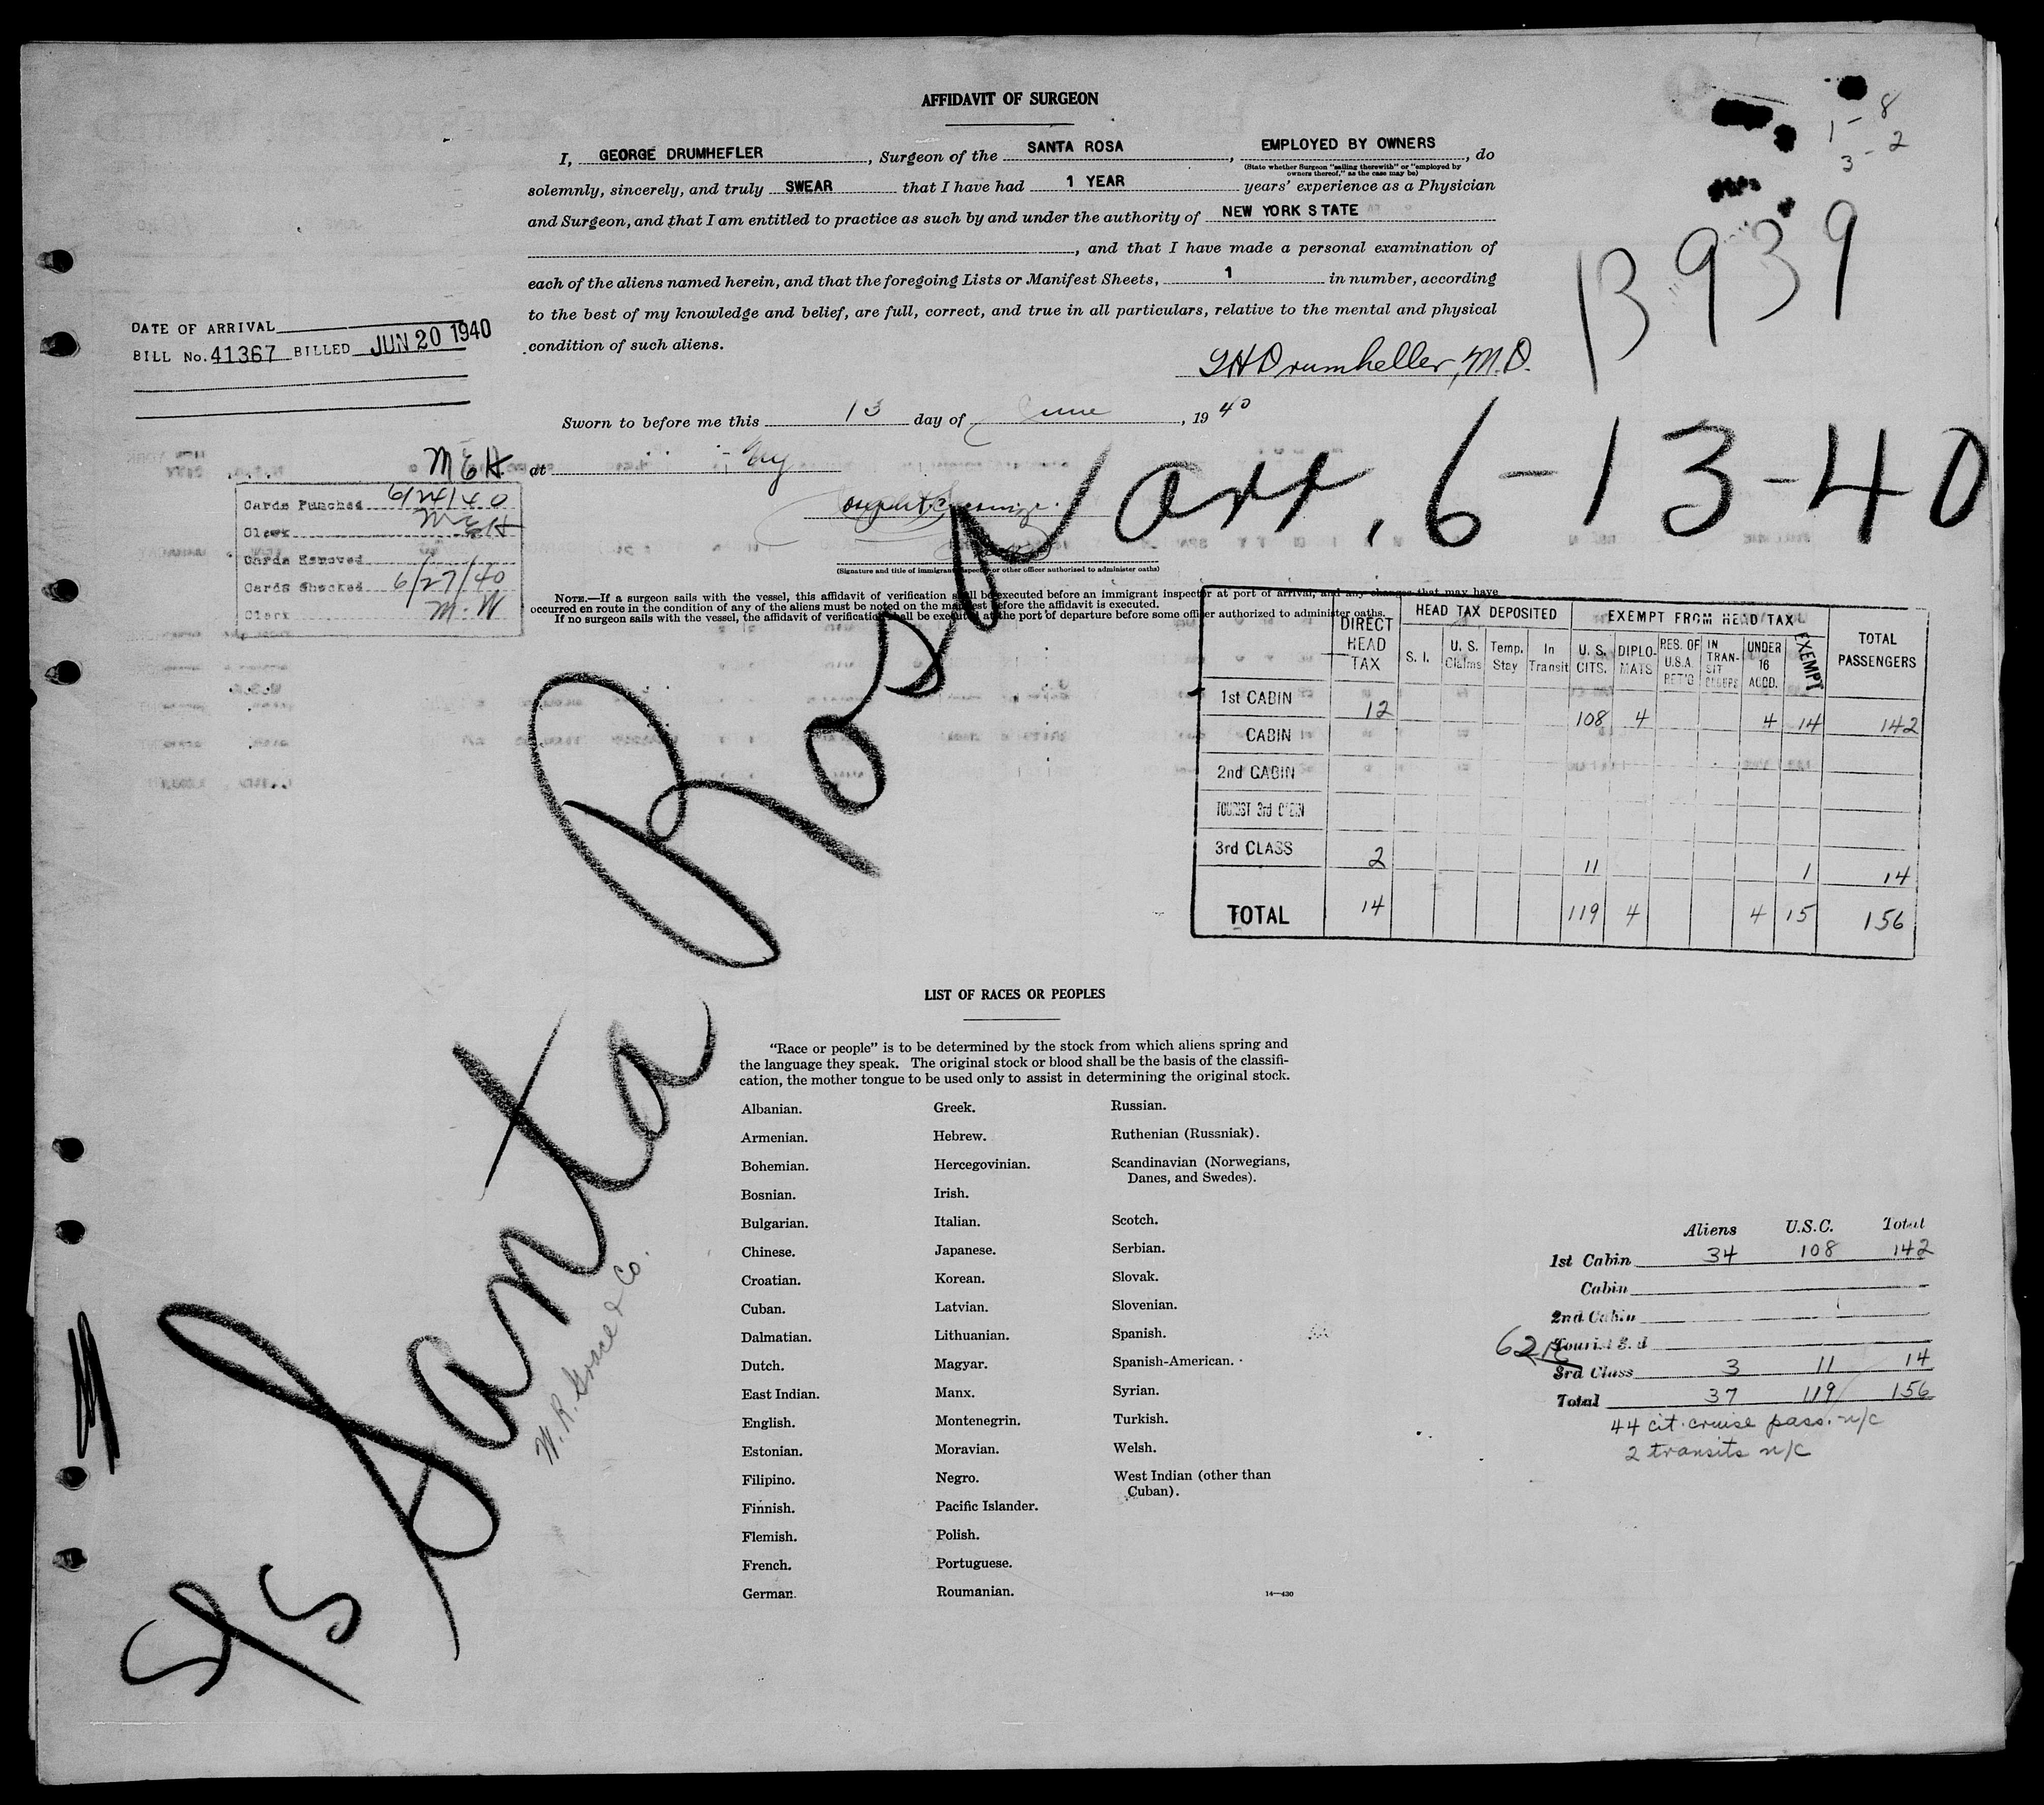 AFFIDAVIT OF SURGEON
I, GEORGE DRUMHEFLER, Surgeon of the SANTA ROSA, EMPLOYED BY OWNERS, do
(State whether Surgeon "sailing therewith" or "employed by
owners thereof," as the case may be)
solemnly, sincerely, and truly SWEAR that I have had 1 YEAR years' experience as a Physician
and Surgeon, and that I am entitled to practice as such by and under the authority of NEW YORK STATE
, and that I have made a personal examination of
each of the aliens named herein, and that the foregoing Lists or Manifest Sheets, 1 in number, according
to the best of my knowledge and belief, are full, correct, and true in all particulars, relative to the mental and physical
condition of such aliens.
G H Drumheller, M.D.
Sworn to before me this 13 day of June, 1940
at
(Signature and title of immigrant inspector or other officer authorized to administer oaths)
NOTE.—If a surgeon sails with the vessel, this affidavit of verification shall be executed before an immigrant inspector at port of arrival, and any changes that may have
occurred en route in the condition of any of the aliens must be noted on the manifest before the affidavit is executed.
If no surgeon sails with the vessel, the affidavit of verification shall be executed at the port of departure before some officer authorized to administer oaths.
1 - 8
3 - 2
B939
DATE OF ARRIVAL
BILL No. 41367 BILLED JUN 20 1940
MEH
Cards Punched 6/24/40
Clerk MEH
Cards Removed
Cards Checked 6/27/40
Clerk M.W
S/S Santa Rosa arr. 6-13-40
W. R. Grace & Co.
DIRECT HEAD TAX | HEAD TAX DEPOSITED | EXEMPT FROM HEAD TAX | TOTAL PASSENGERS
S. I. | U. S. Claims | Temp. Stay | In Transit | U. S. CITS. | DIPLOMATS | RES. OF U.S.A. RET'G | IN TRANSIT | UNDER 16 ACCD. | EXEMPT
1st CABIN 12 108 4 4 14 142
CABIN
2nd CABIN
TOURIST 3rd CABIN
3rd CLASS 2 11 1 14
TOTAL 14 119 4 4 15 156
LIST OF RACES OR PEOPLES
"Race or people" is to be determined by the stock from which aliens spring and
the language they speak. The original stock or blood shall be the basis of the classifi-
cation, the mother tongue to be used only to assist in determining the original stock.
Albanian.
Armenian.
Bohemian.
Bosnian.
Bulgarian.
Chinese.
Croatian.
Cuban.
Dalmatian.
Dutch.
East Indian.
English.
Estonian.
Filipino.
Finnish.
Flemish.
French.
German.
Greek.
Hebrew.
Hercegovinian.
Irish.
Italian.
Japanese.
Korean.
Latvian.
Lithuanian.
Magyar.
Manx.
Montenegrin.
Moravian.
Negro.
Pacific Islander.
Polish.
Portuguese.
Roumanian.
Russian.
Ruthenian (Russniak).
Scandinavian (Norwegians,
Danes, and Swedes).
Scotch.
Serbian.
Slovak.
Slovenian.
Spanish.
Spanish-American.
Syrian.
Turkish.
Welsh.
West Indian (other than
Cuban).
14—430
Aliens U.S.C. Total
1st Cabin 34 108 142
Cabin
2nd Cabin
Tourist 3rd
3rd Class 3 11 14
Total 37 119 156
44 cit. cruise pass. n/c
2 transits n/c